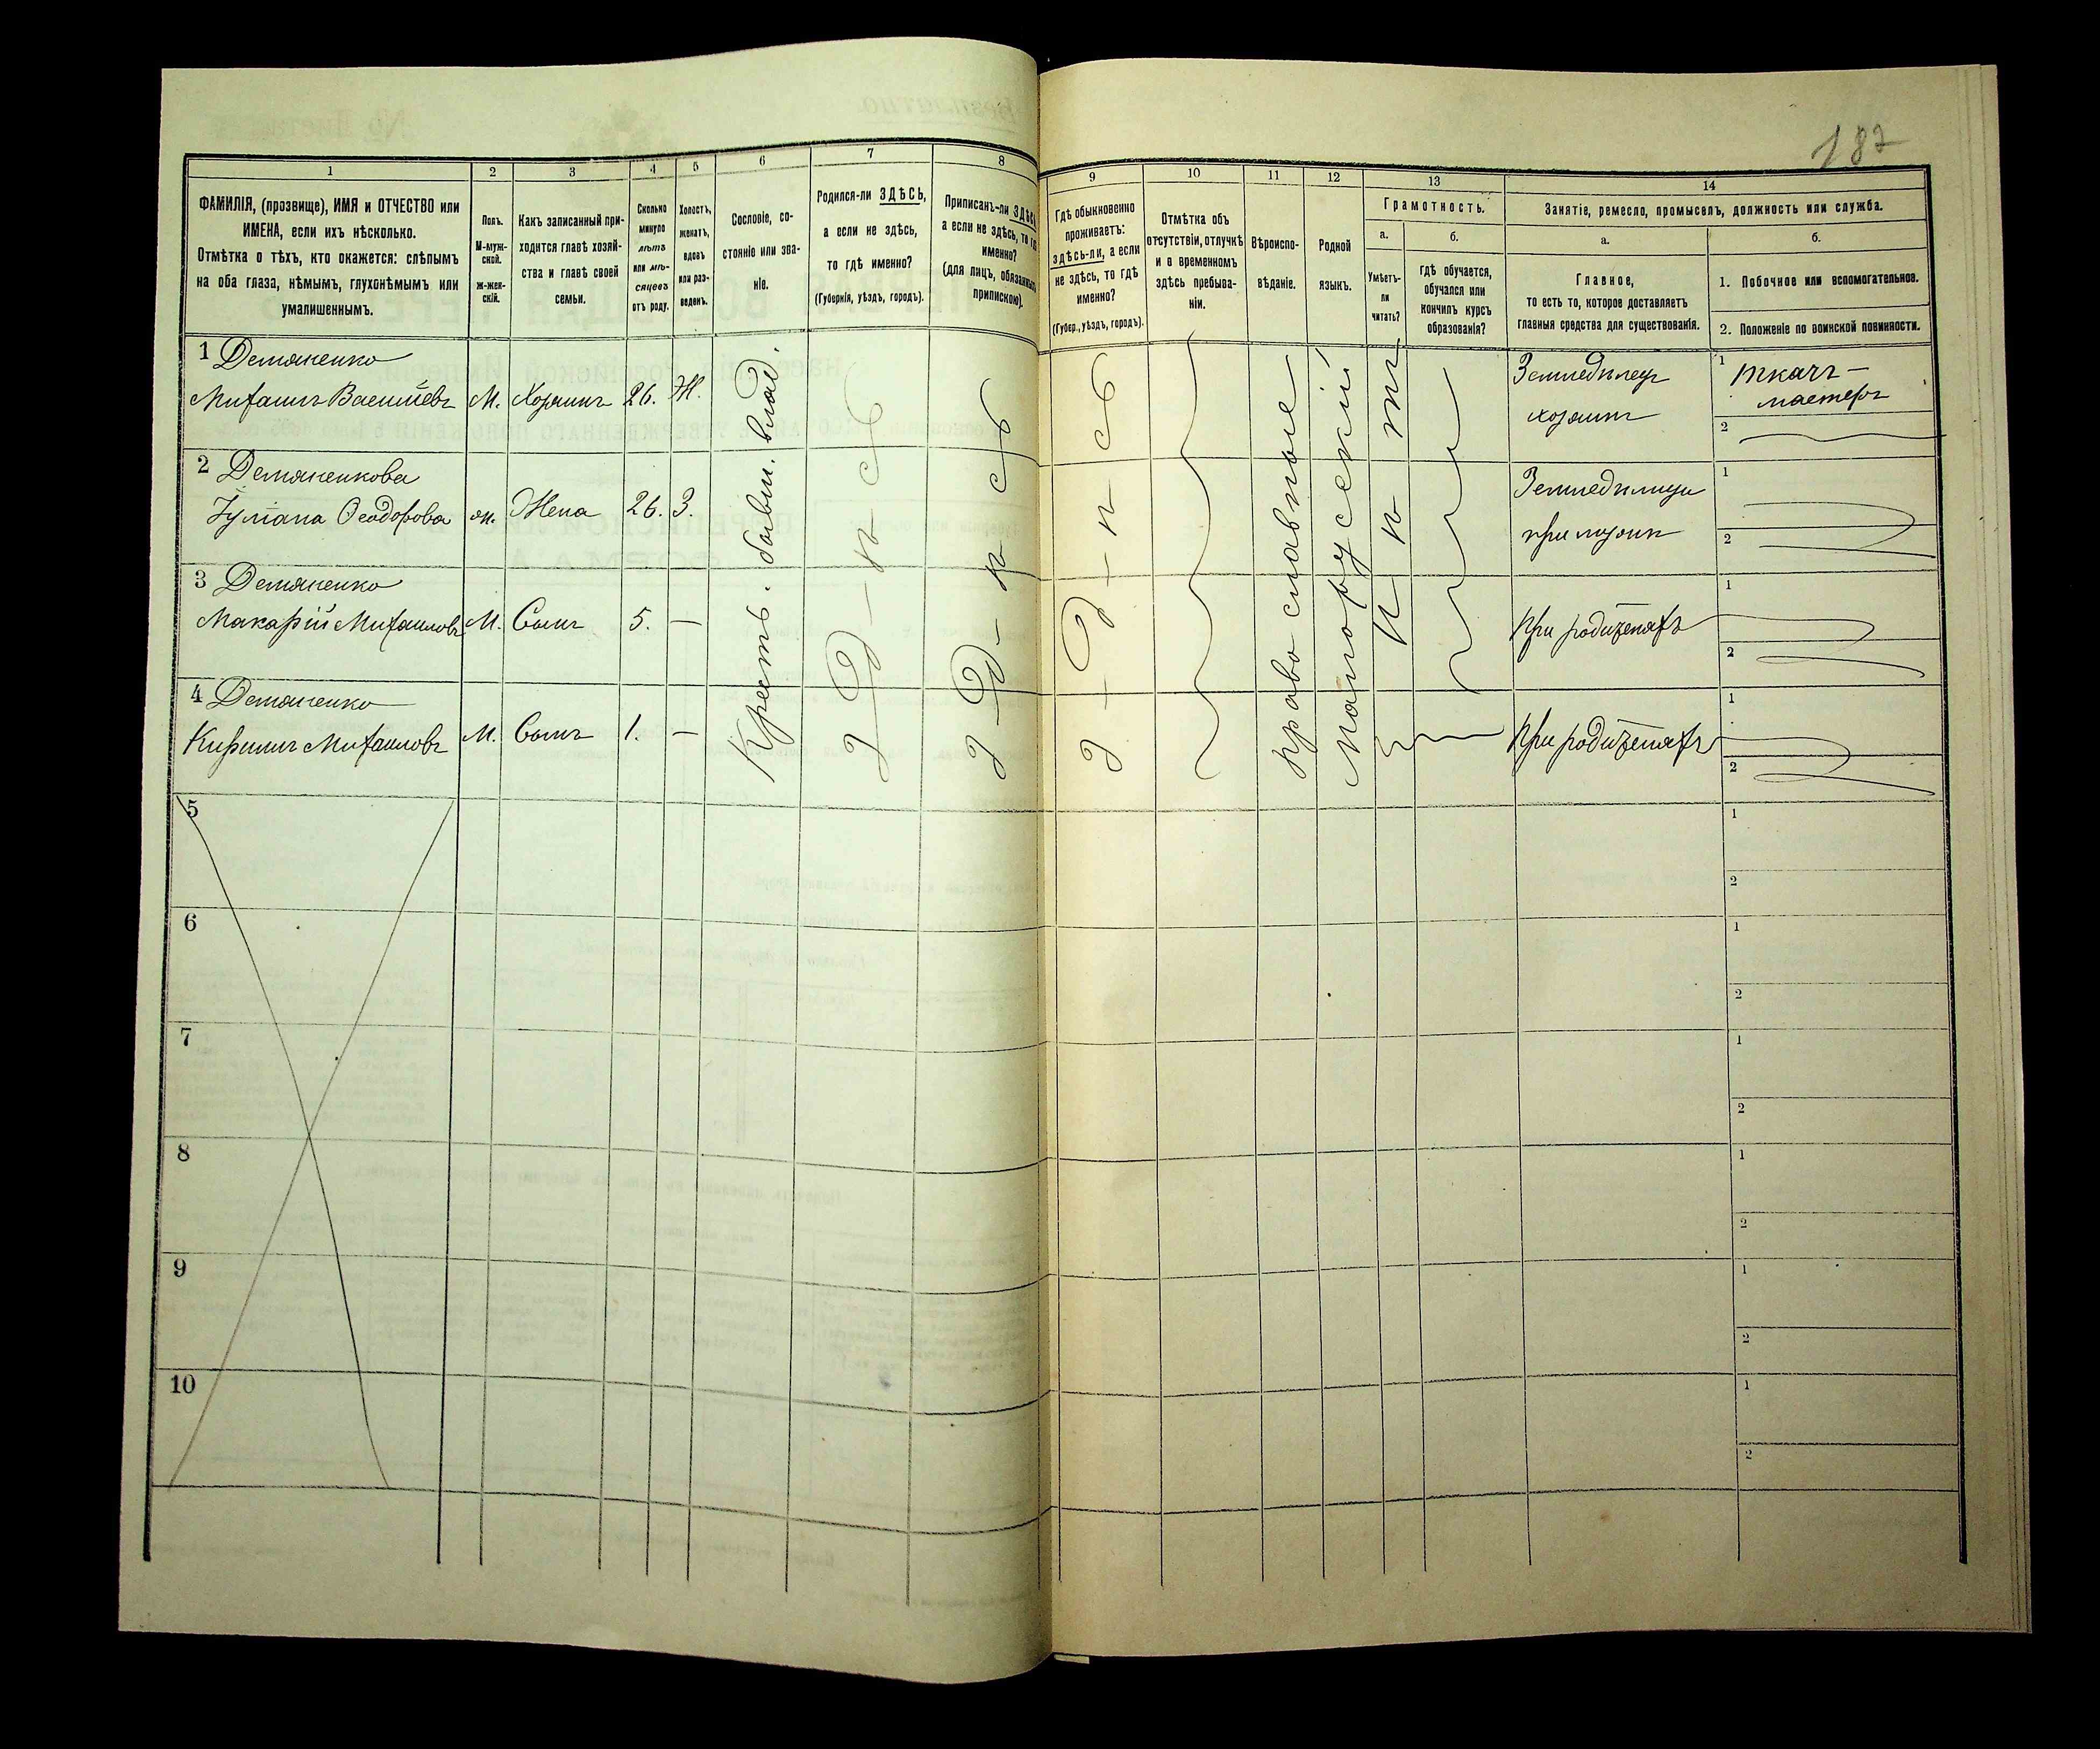 187
1
2
3
4
5
6
7
8
9
10
11
12
13
14
ФАМИЛІЯ, (прозвище), ИМЯ и ОТЧЕСТВО или
ИМЕНА, если ихъ нѣсколько.
Отмѣтка о тѣхъ, кто окажется: слѣпымъ
на оба глаза, нѣмымъ, глухонѣмымъ или
умалишеннымъ.
Полъ.
М-муж-
ской.
Ж-жен-
скій.
Какъ записанный при-
ходится главѣ хозяй-
ства и главѣ своей
семьи.
Сколько
минуло
лѣтъ
или мѣ-
сяцевъ
отъ роду.
Холостъ,
женатъ,
вдовъ
или раз-
веденъ.
Сословіе, со-
стояніе или зва-
ніе.
Родился-ли ЗДѢСЬ,
а если не здѣсь,
то гдѣ именно?
(Губернія, уѣздъ, городъ).
Приписанъ-ли ЗДѢСЬ
а если не здѣсь, то гдѣ
именно?
(для лицъ, обязанныхъ
припискою).
Гдѣ обыкновенно
проживаетъ:
здѣсь-ли, а если
не здѣсь, то гдѣ
именно?
(Губер., уѣздъ, городъ).
Отмѣтка объ
отсутствіи, отлучкѣ
и о временномъ
здѣсь пребыва-
ніи.
Вѣроиспо-
вѣданіе.
Родной
языкъ.
Грамотность.
а.
Умѣетъ-
ли
читать?
б.
гдѣ обучается,
обучался или
кончилъ курсъ
образованія?
Занятіе, ремесло, промыселъ, должность или служба.
а.
Главное,
то есть то, которое доставляетъ
главныя средства для существованія.
б.
1. Побочное или вспомогательное.
2. Положеніе по воинской повинности.
1 Демяненко
Михаилъ Васильевъ М. Хозяинъ 26. Ж.
Крестъ. бывш. влад.
здѣсь
здѣсь
здѣсь
православные
малорусскій
нѣтъ
Земледѣлец
хозяинъ
1 ткачъ –
мастеръ
2
2 Демяненкова
Ѳеодорова ж. Жена 26. З.
1
2
3 Демяненко
Макарій Михаиловъ М. Сынъ 5. –
При родителяхъ
1
2
4 Демяненко
Кирилъ Михаиловъ М. Сынъ 1. –
При родителяхъ
1
2
5
1
2
6
1
2
7
1
2
8
1
2
9
1
2
10
1
2